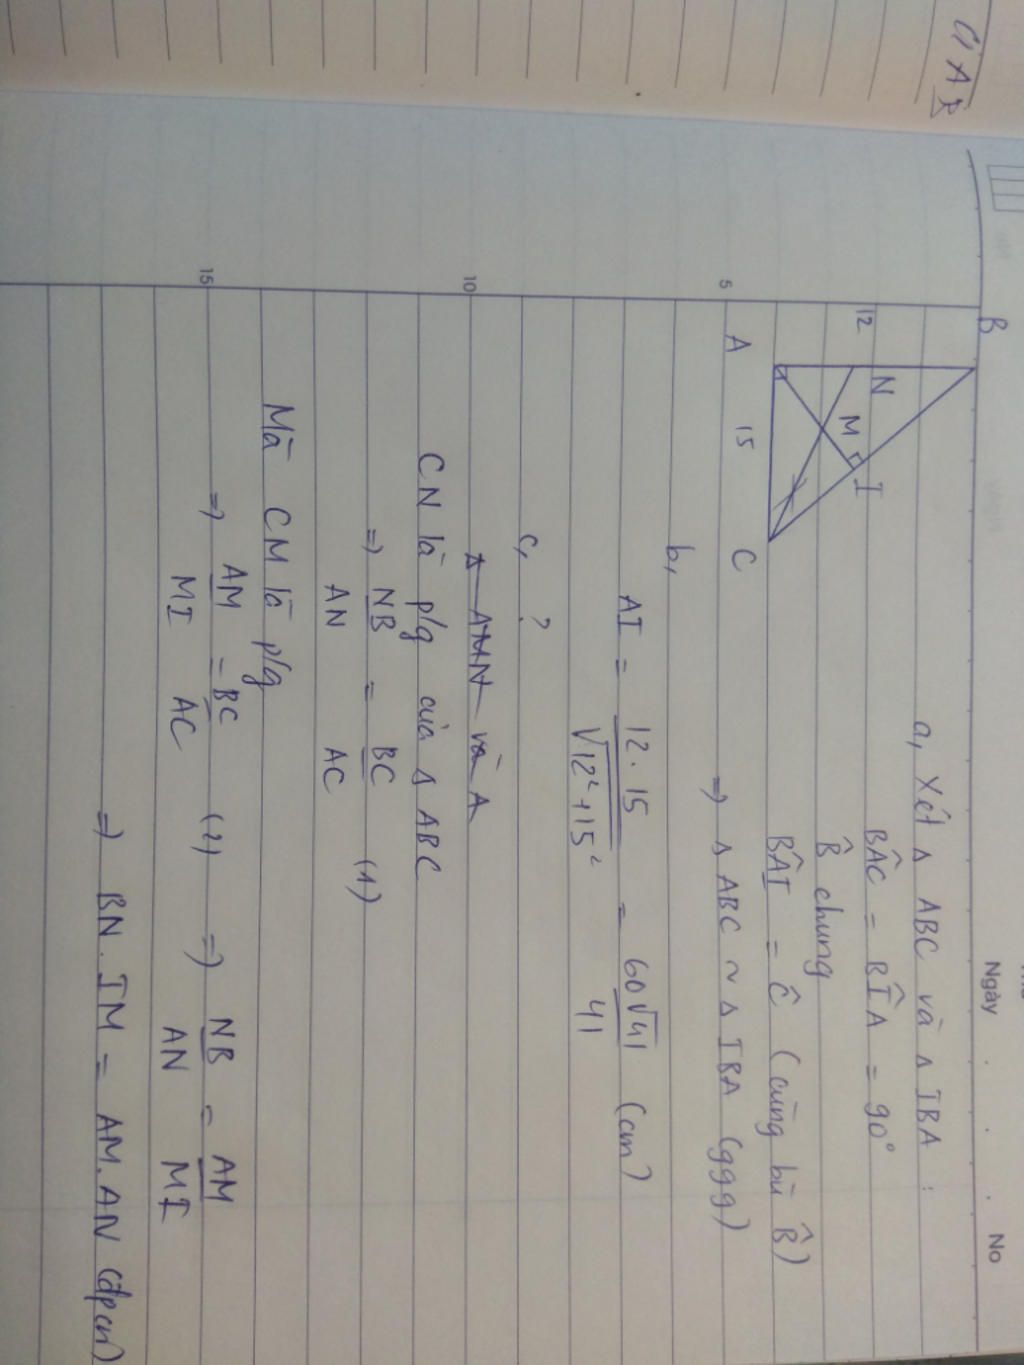 C, A B
Ngày
No
B
12
N
M
I
A
15
C
a, Xét Δ ABC và Δ IBA :
BÂC = BÎA = 90°
B̂ chung
BÂI = Ĉ (cùng bù B̂)
⇒ Δ ABC ~ Δ IBA (ggg)
5
b,
AI = 12.15 / √12²+15² = 60√41 / 41 (cm)
c, ?
10
Δ AMN và A
CN là p/g của Δ ABC
⇒ NB / AN = BC / AC (1)
Mà CM là p/g
15
⇒ AM / MI = BC / AC (2) ⇒ NB / AN = AM / MI
⇒ BN. IM = AM. AN (đpcm)